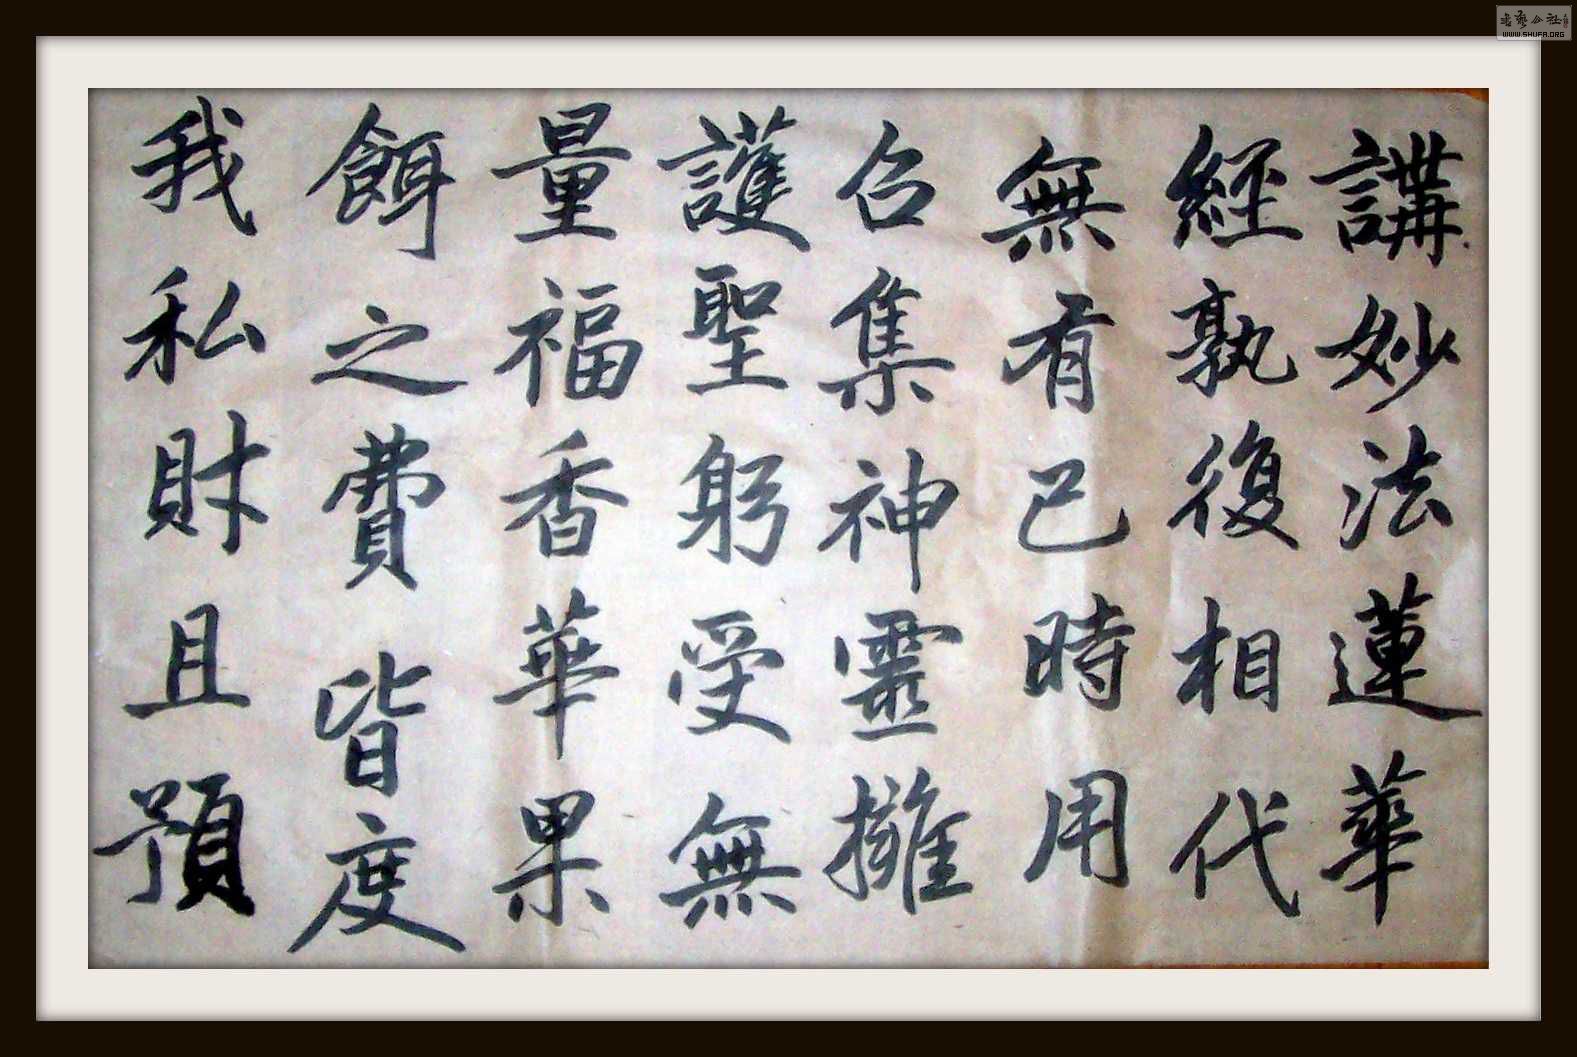 講妙法蓮華
經孰復相代
無有已時用
召集神靈擁
護聖躬受無
量福香華果
餌之費皆度
我私財且預
WWW.SHUFA.ORG